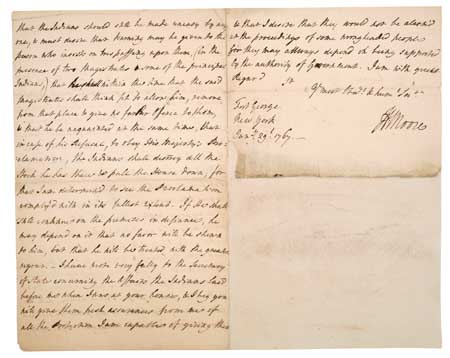 that the Indians should still be made uneasy by any
one, I must desire that warning may be given to the
person who insists on trespassing upon them, (in the
presence of two Magistrates & some of the principal
Indians,) that he shall within the time that the said
Magistrates shall think fit to allow him, remove
from that place & give no further offence to them,
& that he be acquainted at the same time, that
in case of his Refusal, to obey His Majesty's Pro-
clamation, the Indians shall destroy all the
Stock he has there & pull the House down, for
that I am determined to see the Proclamation
complied with in its fullest extent. If He shall
still continue on the premises in defiance, he
may depend on it that no favor will be shewn
to him, but that he will be treated with the greatest
rigour. I have wrote very fully to the Secretary
of State concerning the Affairs the Indians laid
before me when I was at your House, & I beg you
will give them fresh assurances from me of
all the Protection I am capable of giving them
& that I desire that they would not be alarmed
at the proceedings of some wrongheaded people
for they may always depend on being supported
by the authority of Government. I am with great
Regard
Sr
Yr most Obedt & hum Ser
Fort George
New York
Jany 29th 1767.
H Moore